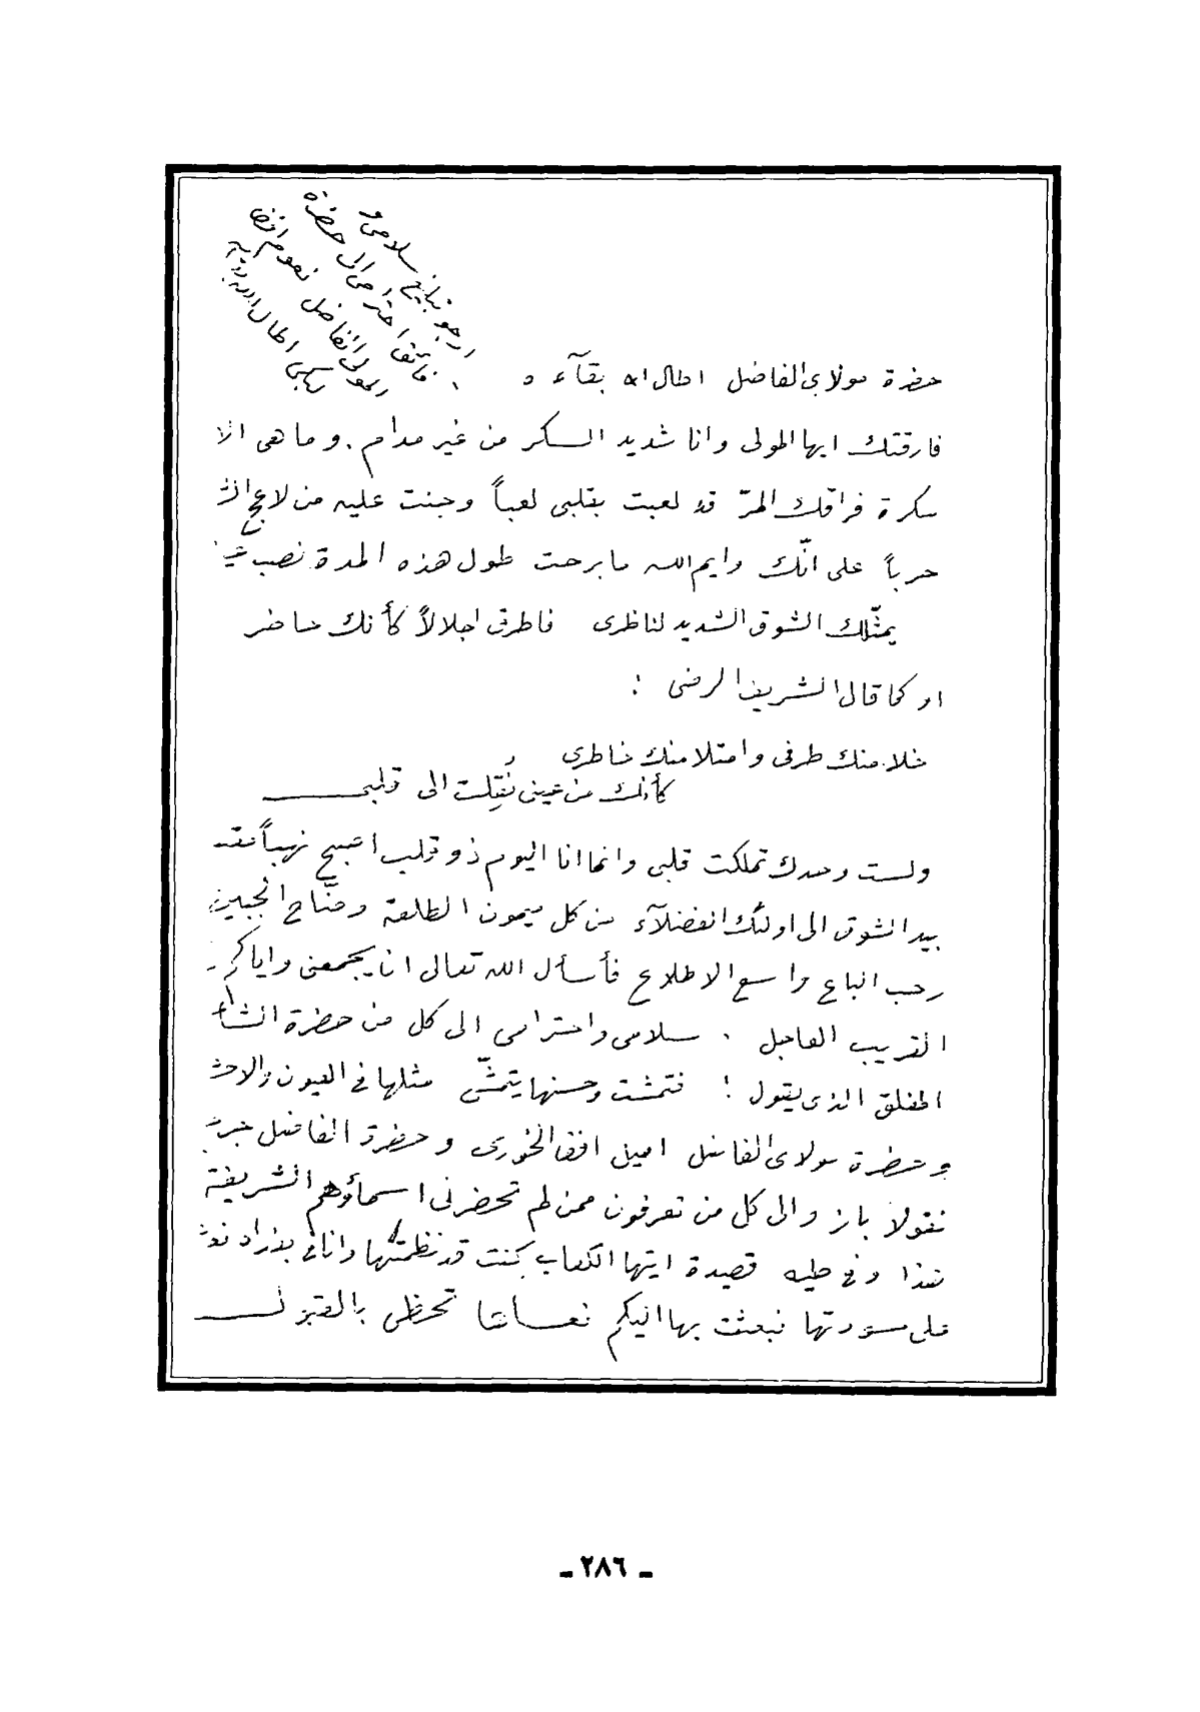 ارجو تبليغ سلامي و
فائق احترامي الى حضرة
المولى الفاضل نعوم افندي
اطال الله بقاءه
حضرة مولاي الفاضل اطال الله بقآءه
فارقتك ايها المولى وانا شديد السكر من غير مدام . وما هي الا
سكرة فراقك المرّ قد لعبت بقلبي لعباً وجنت عليه من لاعج الش
حرباً على انّك وايم الله ما برحت طول هذه المدة نصب عيني
يمثّلك الشوق الشديد لناظري فاطرق اجلالاً كأنك حاضر
او كما قال الشريف الرضي :
خلا منك طرفي وامتلا منك خاطري
كأنك من عيني نُقِلت الى قلبي
ولست وحدك تملكت قلبي وانما انا اليوم ذو قلب اصبح نهباً
بيد الشوق الى اولئك الفضلآء من كل ميمون الطلعة وضّاح الجبين
رحب الباع واسع الاطلاع فأسأل الله تعالى ان يجمعني واياكم
القريب العاجل . سلامي واحترامي الى كل من حضرة الشاعر
المفلق الذي يقول : فتمشت وحسنها يتمشّى مثلها في العيون والاحش
وحضرة مولاي الفاضل امين افندي الخوري وحضرة الفاضل
نقولا باز والى كل من تعرفون ممن لم تحضرني اسماؤهم الشريفة
هذا وفي طيه قصيدة ايتها الكعاب كنت قد نظمتها وانا في بغداد
على مسودتها فبعثت بها اليكم لعساها تحظى بالقبول
ـ ٢٨٦ ـ